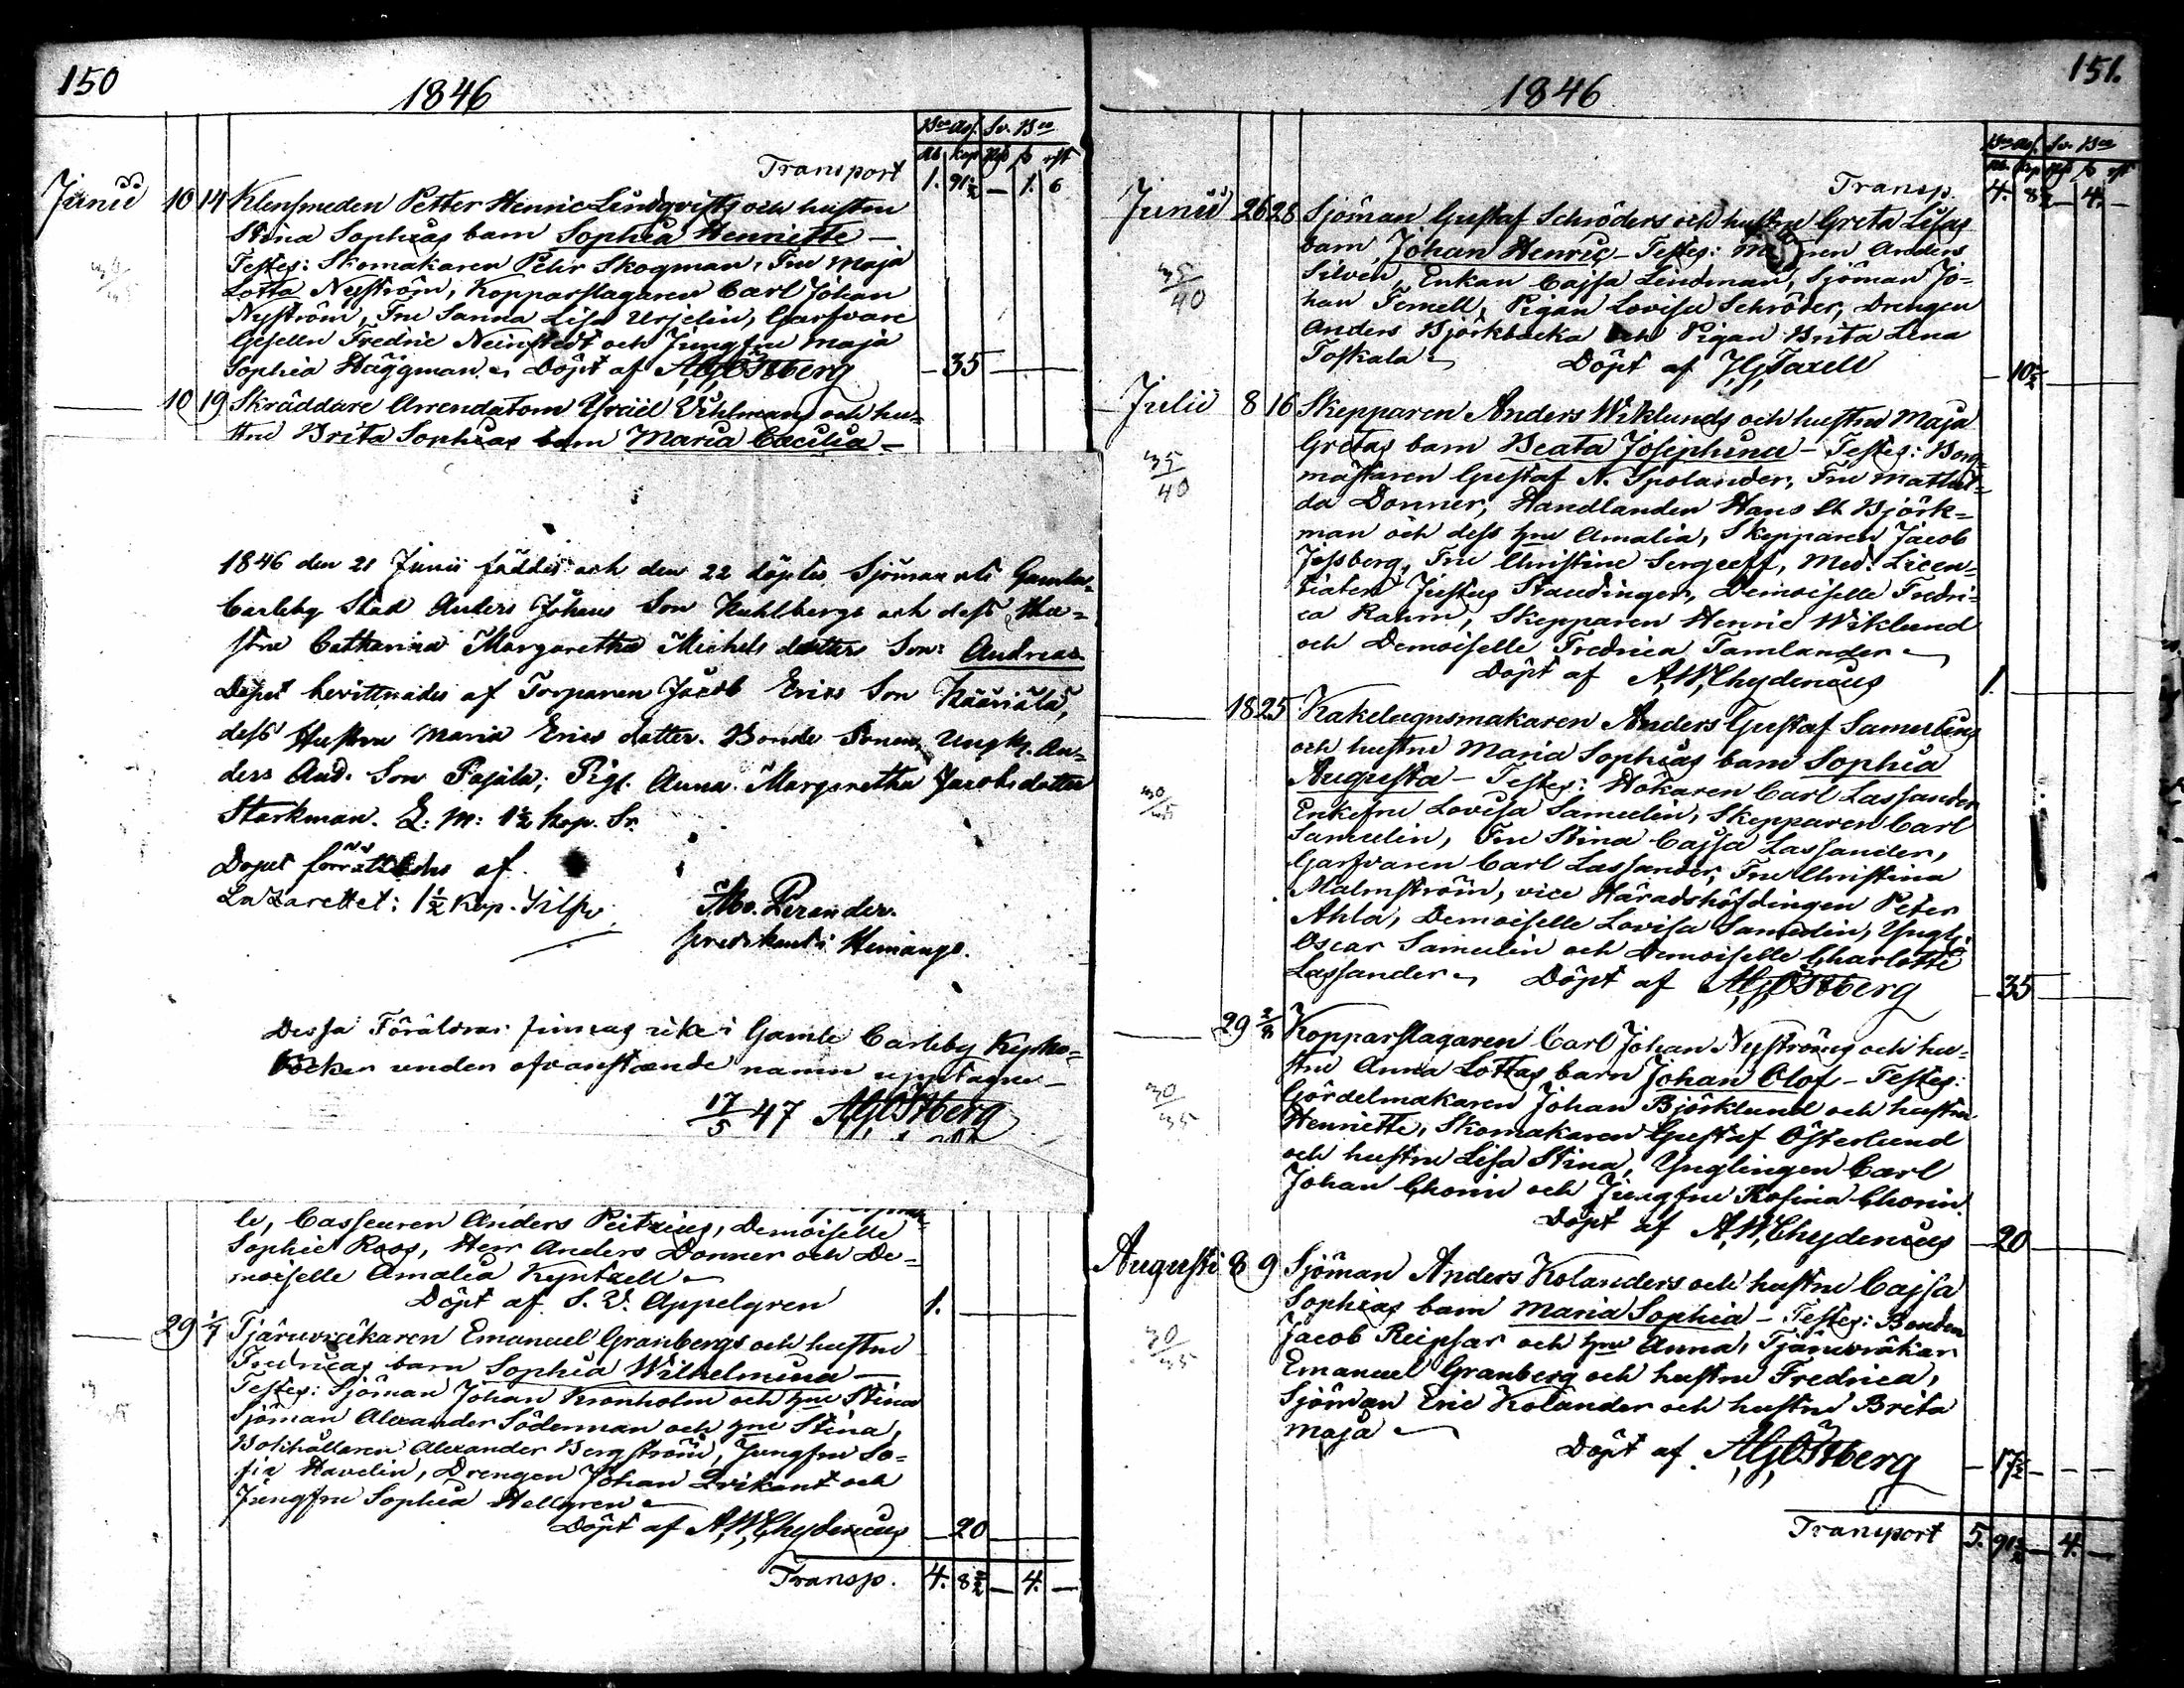 150
1846
Bco Ass. Sv. Bco
Rb. Kop. Rd. ß rst
Transport 1. 91½ — 1. 6
Junii 10 14 Klensmeden Petter Henric Lindqvists och hustru
Stina Sophias barn Sophia Henriette —
Testes: Skomakaren Pehr Skogman, Fru Maja
Lotta Nyström, Kopparslagaren Carl Johan
Nyström, Fru Sanna Lisa Urselin, Garfvare
Gesellen Fredric Neinstedt och Jungfru Maja
Sophia Häggman. Döpt af AGÖstberg — 35 —
10 19 Skräddare Arrendatorn Israël Uhlmans och hu-
stru Brita Sophias barn Maria Cæcilia —
1846 den 21 Junii föddes och den 22 döptes Sjöman uti Gamla
Carleby Stad Anders Johans Son Kuhlbergs och dess Hu-
stru Catharina Margaretha Michels dotters Son: Andreas
Dopet bevittnades af Torparen Jacob Erics Son Kääriälä,
dess Hustru Maria Erics dotter. Bonde Sonen, Ungk. An-
ders And. Son Pajala; Pig. Anna Margaretha Jacobs dotter
Starkman. L: M: 1½ kop. Sr.
Dopet förrättades af
Lazarettet: 1½ Kop. Silfv.
Perander.
predikant i Himango.
Dessa Föräldrar finnas icke i Gamle Carleby Kyrko-
böcker under ofvanstående namn upptagne —
17/5 47 AGÖstberg
le, Casseuren Anders Peitzius, Demoiselle
Sophie Roos, Herr Anders Donner och De-
moiselle Amalia Kyntzell
Döpt af S. V. Appelgren 1. —
29 1/7 Tjäruvräkaren Emanuel Granbergs och hustru
Fredricas barn Sophia Wilhelmina —
Testes: Sjöman Johan Kronholm och hru Stina
Sjöman Alexander Söderman och hru Stina,
Bokhållaren Alexander Bergström, Jungfru So-
fia Havelin, Drengen Johan Qvikant och
Jungfru Sophia Hellgren
Döpt af A.W.Chydenius — 20
Transp. 4. 8½ — 4. —
151.
1846
Bco Ass. Sv. Bco
Rb. Kop. Rd. ß rst
Transp. 4. 8½ — 4. —
Junii 26 28 Sjöman Gustaf Schröders och hustru Greta Lisas
35/40
barn, Johan Henric — Testes: Anders
Silvén, Enkan Cajsa Lindman, Sjöman Jo-
han Femell, Pigan Lovisa Schröder, Drengen
Anders Björkbacka och Pigan Brita Lena
Toskala Döpt af JGTaxell — 10½
Julii 8 16 Skepparen Anders Wiklunds och hustru Maja
35/40
Gretas barn Beata Josephina — Testes: Borg-
mästaren Gustaf N. Spolander, Fru Mathil-
da Donner, Handlanden Hans H. Björk-
man och dess hru Amalia, Skepparen Jacob
Jessberg, Fru Christine Sergeeff, Med. Licen-
tiaten Justus Staudinger, Demoiselle Fredri-
ca Rahm, Skepparen Henric Wiklund
och Demoiselle Fredrica Tamlander
Döpt af A.W.Chydenius 1. —
18 25 Kakelugnsmakaren Anders Gustaf Samelins
och hustru Maria Sophias barn Sophia
Augusta — Testes: Hökaren Carl Lassander
Enkefru Lovisa Samelin, Skepparen Carl
Samelin, Fru Stina Cajsa Lassander,
Garfvaren Carl Lassander, Fru Christina
Malmström, vice Häradshöfdingen Peter
Ahla, Demoiselle Lovisa Samelin, Yngl.
Oscar Samelin och Demoiselle Charlotte
Lassander Döpt af AGÖstberg — 35
29 2/8 Kopparslagaren Carl Johan Nyströms och hu-
30/35
stru Anna Lottas barn Johan Olof — Testes:
Gördelmakaren Johan Björklund och hustru
Henriette, Skomakaren Gustaf Österlund
och hustru Lisa Stina, Ynglingen Carl
Johan Chorin och Jungfru Rosina Chorin.
Döpt af A.W.Chydenius — 20
Augusti 8 9 Sjöman Anders Kolanders och hustru Cajsa
30/35
Sophias barn Maria Sophia — Testes: Bonden
Jacob Reipsar och hru Anna, Tjäruvräkar
Emanuel Granberg och hustru Fredrica,
Sjöman Eric Kolander och hustru Brita
Maja
Döpt af AGÖstberg — 17½ — — —
Transport 5. 91½ — 4. —